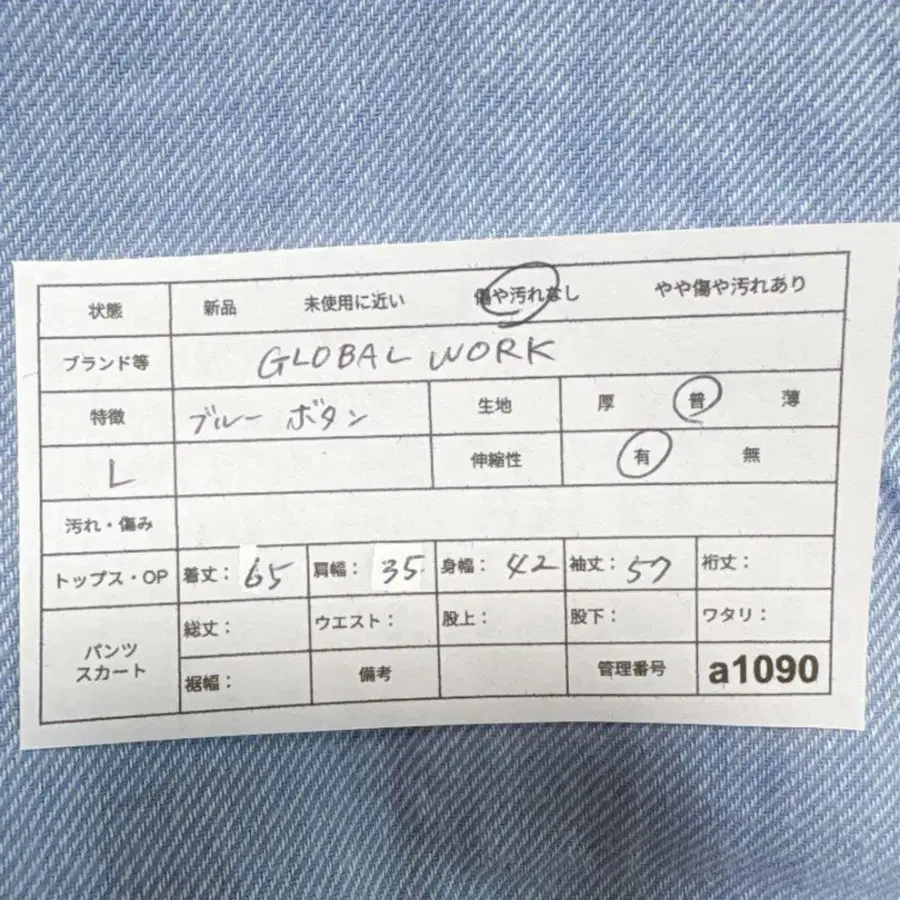 状態 新品 未使用に近い 傷や汚れなし やや傷や汚れあり
ブランド等 GLOBAL WORK
特徴 ブルー ボタン 生地 厚 普 薄
L 伸縮性 有 無
汚れ・傷み
トップス・OP 着丈： 65 肩幅： 35 身幅： 42 袖丈： 57 裄丈：
パンツ スカート 総丈： ウエスト： 股上： 股下： ワタリ：
裾幅： 備考 管理番号 a1090